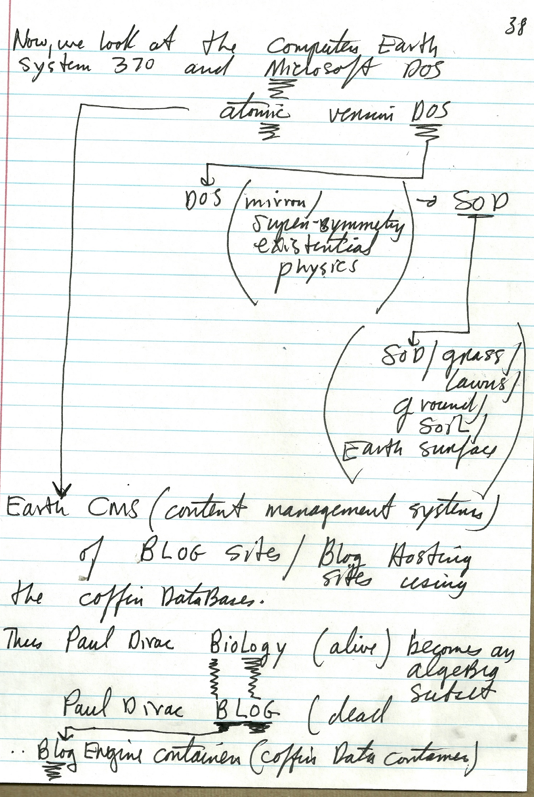 38
Now, we look at the Computer Earth
System 370 and Microsoft DOS
atomic version DOS
DOS (mirror/ → SOD
super-symmetry
existential
physics)
(SOD/grass/
lawns/
ground/
soil/
Earth surface)
Earth CMS (content management systems)
of BLOG sites / Blog Hosting
sites using
the coffin DataBases.
Thus Paul Dirac Biology (alive) becomes an
algebra
subset
Paul Dirac BLOG (dead
.. Blog Engine container (coffin Data container)